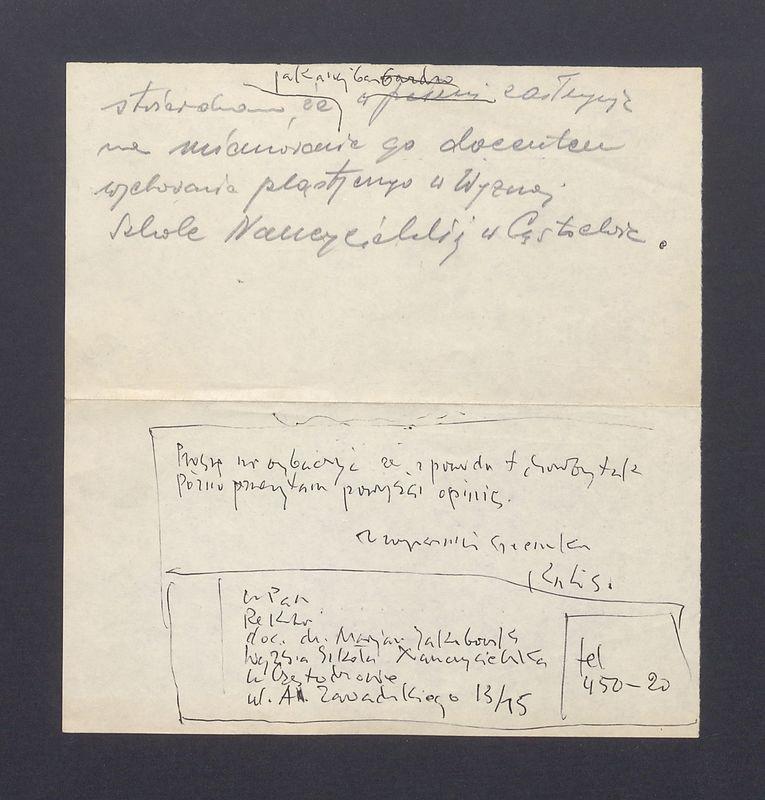 jak najbardziej
stwierdzam, że w pełni zasługuje
na mianowanie go docentem
wychowania plastycznego w Wyższej
Szkole Nauczycielskiej w Częstochowie.
Proszę mi wybaczyć że z powodu choroby tak
późno przesyłam powyższą opinię.
wyrazami szacunku
w Pan
Rektor
doc. dr. Marjan Jakubowski
Wyższa Szkoła Nauczycielska
w Częstochowie
ul. Al. Zawadzkiego 13/15
tel
450-20